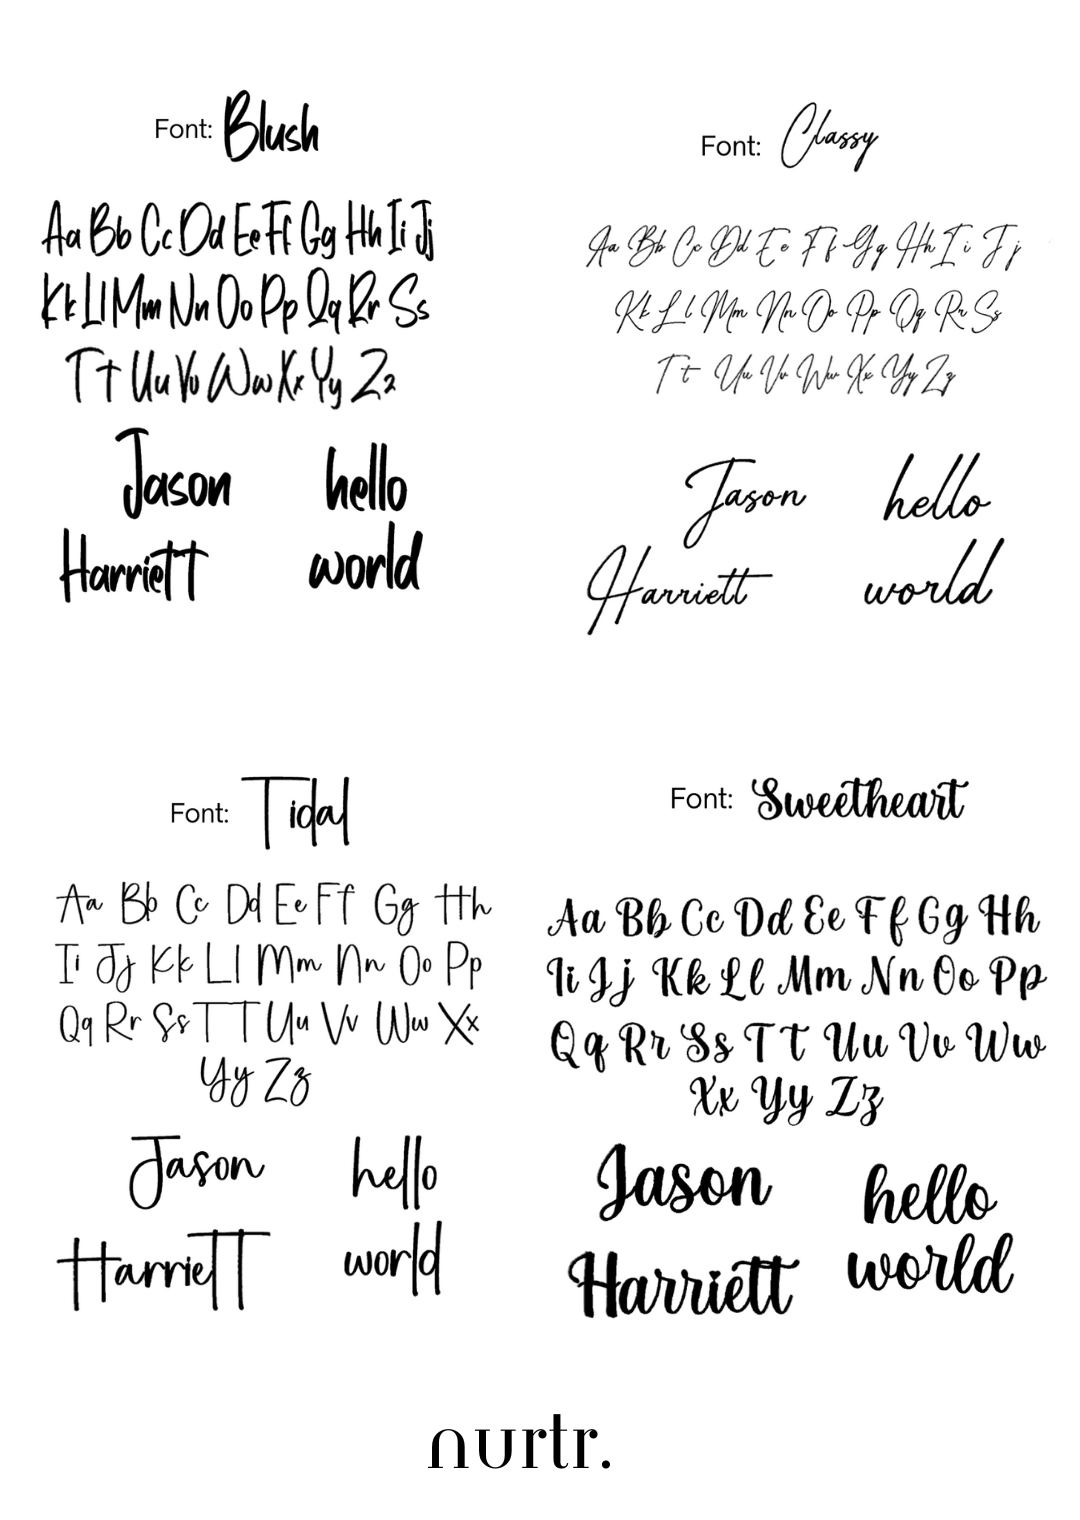 Font: Blush
Aa Bb Cc Dd Ee Ff Gg Hh Ii Jj
Kk Ll Mm Nn Oo Pp Qq Rr Ss
Tt Uu Vv Ww Xx Yy Zz
Jason
hello
Harriett
world
Font: Classy
Aa Bb Cc Dd Ee Ff Gg Hh Ii Jj
Kk Ll Mm Nn Oo Pp Qq Rr Ss
Tt Uu Vv Ww Xx Yy Zz
Jason
hello
Harriett
world
Font: Tidal
Aa Bb Cc Dd Ee Ff Gg Hh
Ii Jj Kk Ll Mm Nn Oo Pp
Qq Rr Ss Tt Uu Vv Ww Xx
Yy Zz
Jason
hello
Harriett
world
Font: Sweetheart
Aa Bb Cc Dd Ee Ff Gg Hh
Ii Jj Kk Ll Mm Nn Oo Pp
Qq Rr Ss Tt Uu Vv Ww
Xx Yy Zz
Jason
hello
Harriett
world
nurtr.